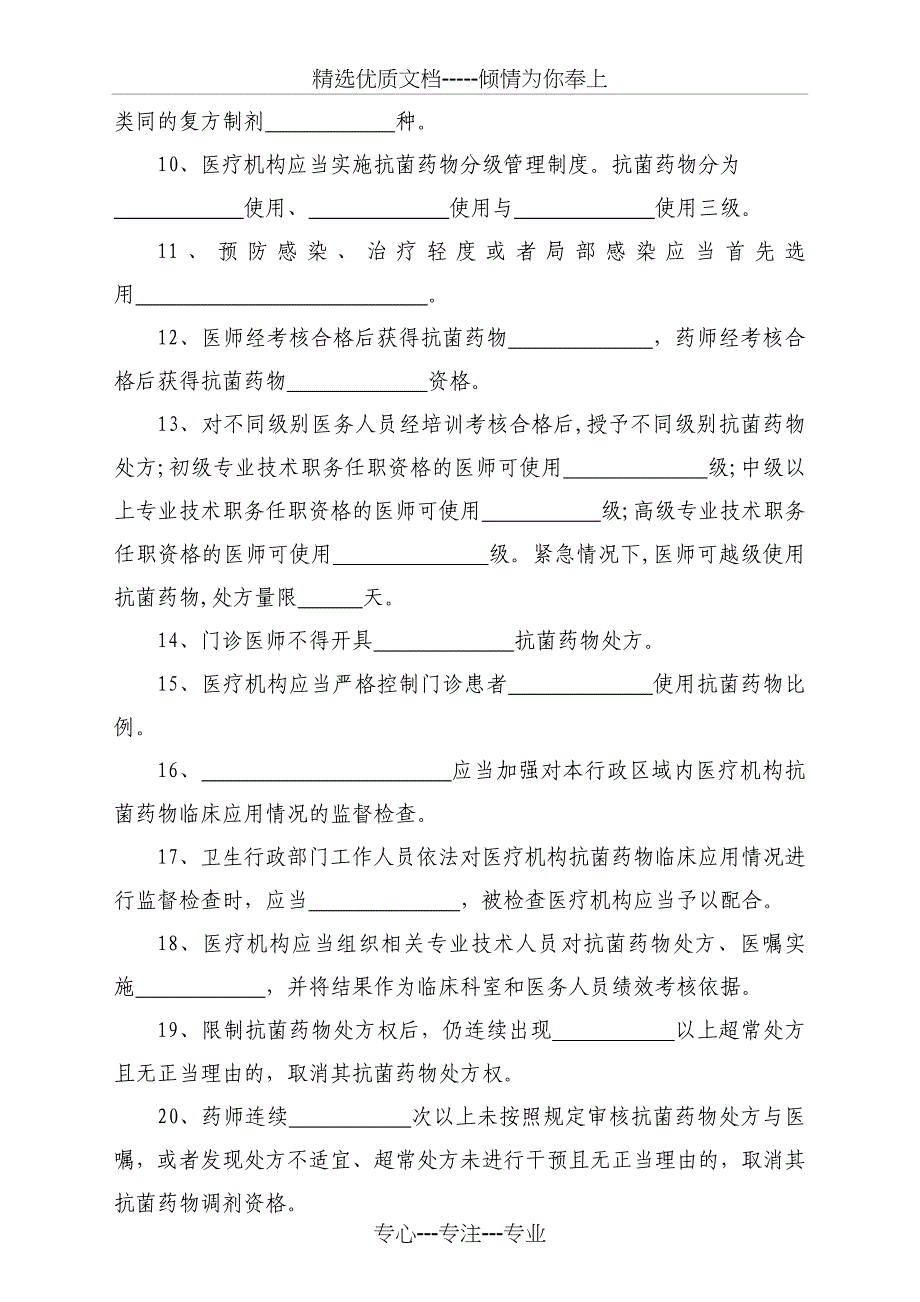 精选优质文档-----倾情为你奉上
类同的复方制剂____________种。
10、医疗机构应当实施抗菌药物分级管理制度。抗菌药物分为
____________使用、_____________使用与_____________使用三级。
11、预防感染、治疗轻度或者局部感染应当首先选
用___________________________。
12、医师经考核合格后获得抗菌药物_____________，药师经考核合
格后获得抗菌药物_____________资格。
13、对不同级别医务人员经培训考核合格后,授予不同级别抗菌药物
处方;初级专业技术职务任职资格的医师可使用_____________级;中级以
上专业技术职务任职资格的医师可使用___________级;高级专业技术职务
任职资格的医师可使用______________级。紧急情况下,医师可越级使用
抗菌药物,处方量限______天。
14、门诊医师不得开具_____________抗菌药物处方。
15、医疗机构应当严格控制门诊患者_____________使用抗菌药物比
例。
16、_______________________应当加强对本行政区域内医疗机构抗
菌药物临床应用情况的监督检查。
17、卫生行政部门工作人员依法对医疗机构抗菌药物临床应用情况进
行监督检查时，应当______________，被检查医疗机构应当予以配合。
18、医疗机构应当组织相关专业技术人员对抗菌药物处方、医嘱实
施____________，并将结果作为临床科室和医务人员绩效考核依据。
19、限制抗菌药物处方权后，仍连续出现___________以上超常处方
且无正当理由的，取消其抗菌药物处方权。
20、药师连续___________次以上未按照规定审核抗菌药物处方与医
嘱，或者发现处方不适宜、超常处方未进行干预且无正当理由的，取消其
抗菌药物调剂资格。
专心---专注---专业